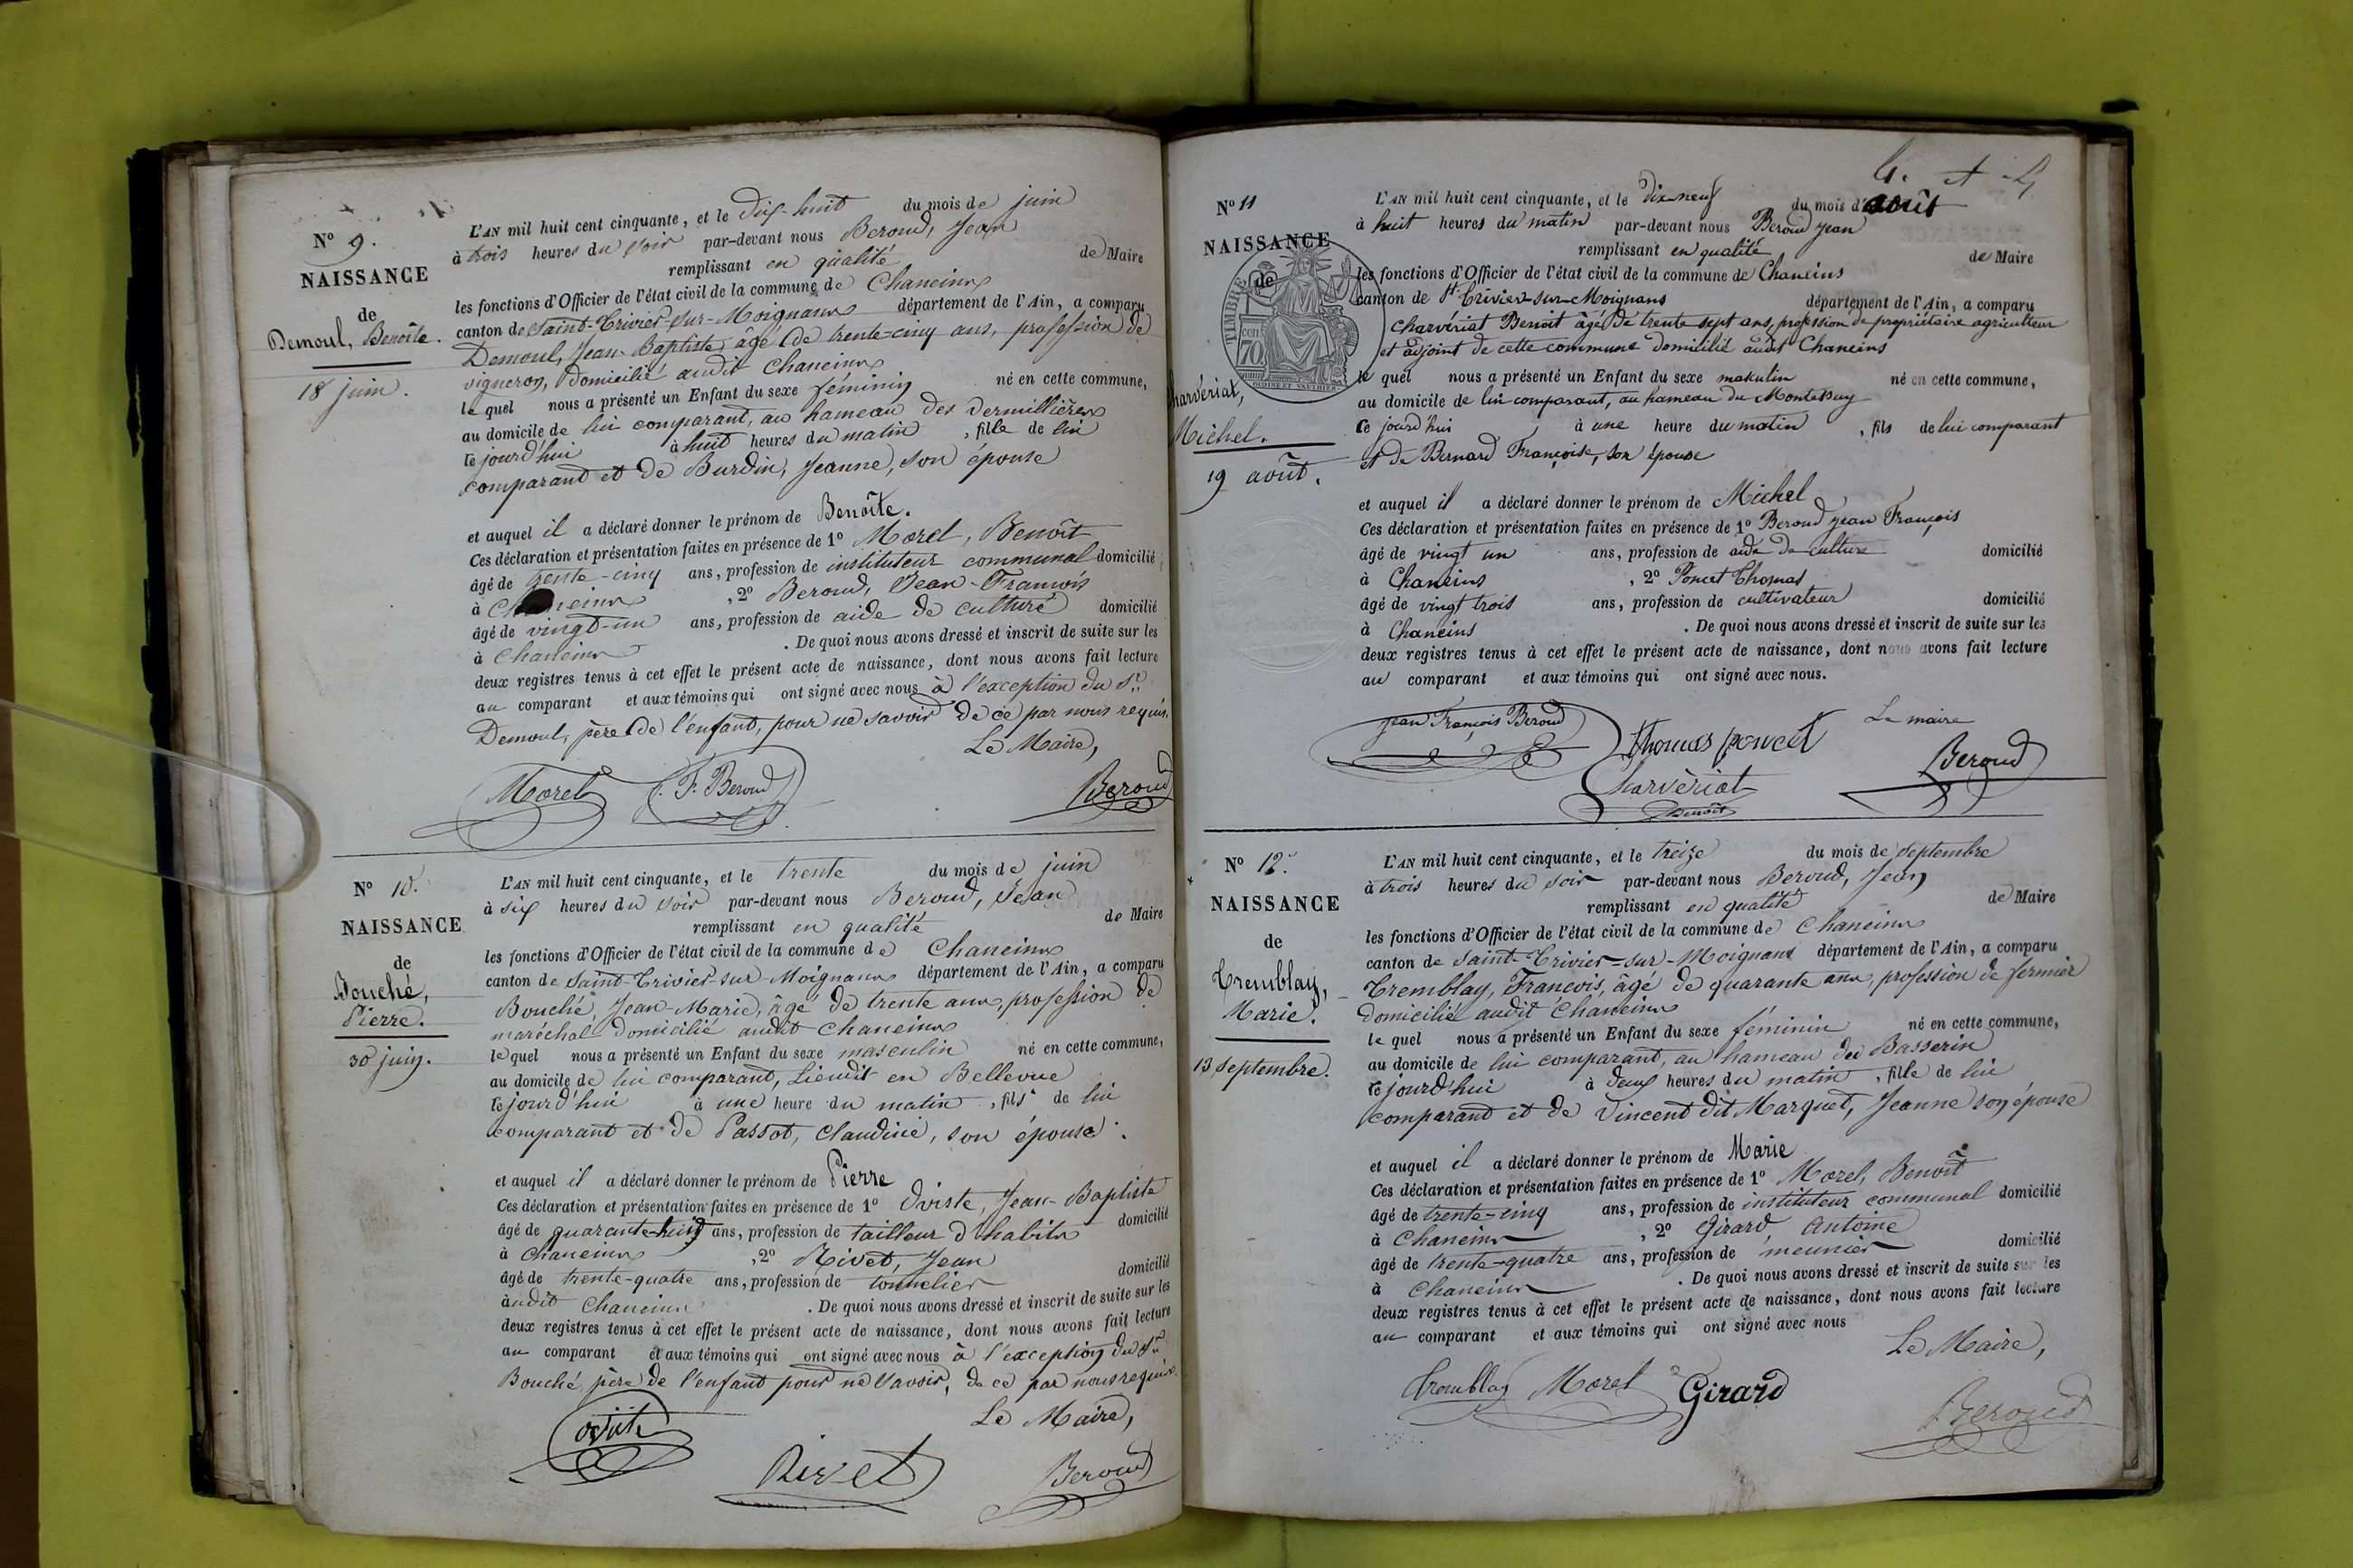 N° 9.
NAISSANCE
de
Demoul, Benoîte.
18 juin.
L'AN mil huit cent cinquante, et le Dix-huit du mois de juin
à trois heures du soir par-devant nous Beroud, Jean
remplissant en qualité de Maire
les fonctions d'Officier de l'état civil de la commune de Chaneins
canton de Saint-Trivier-sur-Moignans département de l'Ain, a comparu
Demoul, Jean-Baptiste, âgé de trente-cinq ans, profession de
vigneron, domicilié audit Chaneins
le quel nous a présenté un Enfant du sexe féminin né en cette commune,
au domicile de lui comparant, au hameau des Dermillières
ce jourd'hui à huit heures du matin, fille de lui
comparant et de Burdin, Jeanne, son épouse
et auquel il a déclaré donner le prénom de Benoîte.
Ces déclaration et présentation faites en présence de 1° Morel, Benoît
âgé de trente-cinq ans, profession de instituteur communal domicilié
à Chaneins, 2° Beroud, Jean-François
âgé de vingt-un ans, profession de aide de culture domicilié
à Chaneins. De quoi nous avons dressé et inscrit de suite sur les
deux registres tenus à cet effet le présent acte de naissance, dont nous avons fait lecture
au comparant et aux témoins qui ont signé avec nous à l'exception du Sr
Demoul, père de l'enfant, pour ne savoir de ce par nous requis.
Le Maire,
Morel J. F. Beroud Beroud
N° 10.
NAISSANCE
de
Bouché,
Pierre.
30 juin.
L'AN mil huit cent cinquante, et le trente du mois de juin
à six heures du soir par-devant nous Beroud, Jean
remplissant en qualité de Maire
les fonctions d'Officier de l'état civil de la commune de Chaneins
canton de Saint-Trivier-sur-Moignans département de l'Ain, a comparu
Bouché, Jean-Marie, âgé de trente ans, profession de
maréchal domicilié audit Chaneins
le quel nous a présenté un Enfant du sexe masculin né en cette commune,
au domicile de lui comparant, Lieudit en Bellevue
ce jourd'hui à une heure du matin, fils de lui
comparant et de Passot, Claudine, son épouse.
et auquel il a déclaré donner le prénom de Pierre
Ces déclaration et présentation faites en présence de 1° Oviste, Jean-Baptiste
âgé de quarante-huit ans, profession de tailleur d'habits domicilié
à Chaneins, 2° Rivet, Jean
âgé de trente-quatre ans, profession de tonnelier domicilié
àudit Chaneins. De quoi nous avons dressé et inscrit de suite sur les
deux registres tenus à cet effet le présent acte de naissance, dont nous avons fait lecture
au comparant et aux témoins qui ont signé avec nous à l'exception du Sr
Bouché, père de l'enfant pour ne savoir, de ce par nous requis.
Le Maire,
Rivet Beroud
N° 11
NAISSANCE
de
TIMBRE
70
Charvériat,
Michel.
19 août.
L'AN mil huit cent cinquante, et le dix-neuf du mois d'août
à huit heures du matin par-devant nous Beroud Jean
remplissant en qualité de Maire
les fonctions d'Officier de l'état civil de la commune de Chaneins
canton de St Trivier-sur-Moignans département de l'Ain, a comparu
Charvériat Benoit âgé de trente sept ans, profession de propriétaire agriculteur
et adjoint de cette commune domicilié audit Chaneins
le quel nous a présenté un Enfant du sexe maskulin né en cette commune,
au domicile de lui comparant, au hameau du Montessuy
ce jourd'hui à une heure du matin, fils de lui comparant
et de Bernard Françoise, son épouse
et auquel il a déclaré donner le prénom de Michel
Ces déclaration et présentation faites en présence de 1° Beroud Jean François
âgé de vingt un ans, profession de aide de culture domicilié
à Chaneins, 2° Poncet Thomas
âgé de vingt trois ans, profession de cultivateur domicilié
à Chaneins. De quoi nous avons dressé et inscrit de suite sur les
deux registres tenus à cet effet le présent acte de naissance, dont nous avons fait lecture
au comparant et aux témoins qui ont signé avec nous.
Jean François Beroud Thomas poncet Le maire
Charvériat Beroud
Benoît
N° 12.
NAISSANCE
de
Tremblay,
Marie.
13 Septembre.
L'AN mil huit cent cinquante, et le treize du mois de Septembre
à trois heures du soir par-devant nous Beroud, Jean
remplissant en qualité de Maire
les fonctions d'Officier de l'état civil de la commune de Chaneins
canton de Saint-Trivier-sur-Moignans département de l'Ain, a comparu
Tremblay, François, âgé de quarante ans, profession de fermier
domicilié audit Chaneins
le quel nous a présenté un Enfant du sexe féminin né en cette commune,
au domicile de lui comparant, au hameau du Basserin
ce jourd'hui à deux heures du matin, fille de lui
comparant et de Vincent dit Marquet, Jeanne son épouse
et auquel il a déclaré donner le prénom de Marie
Ces déclaration et présentation faites en présence de 1° Morel, Benoît
âgé de trente-cinq ans, profession de instituteur communal domicilié
à Chaneins, 2° Girard, Antoine
âgé de trente-quatre ans, profession de meunier domicilié
à Chaneins. De quoi nous avons dressé et inscrit de suite sur les
deux registres tenus à cet effet le présent acte de naissance, dont nous avons fait lecture
au comparant et aux témoins qui ont signé avec nous
Le Maire,
Tremblay Morel Girard
Beroud